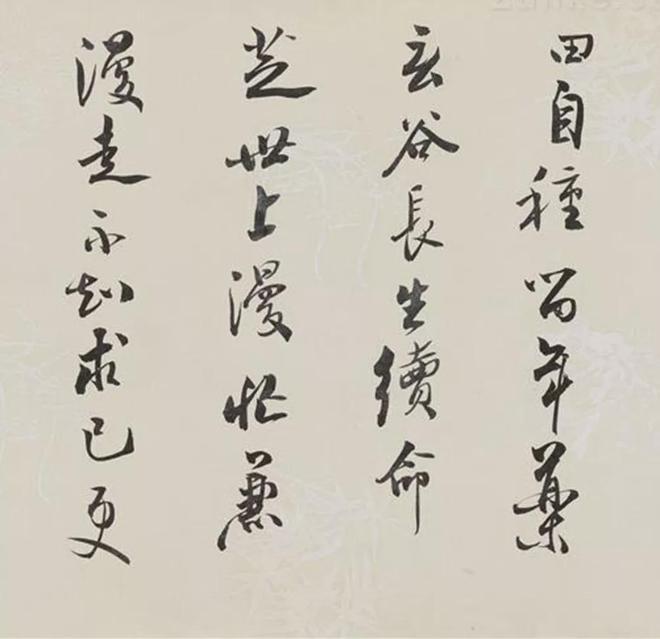 田自種留年藥
玄谷長生續命
芝世上漫忙兼
漫走不知求己更